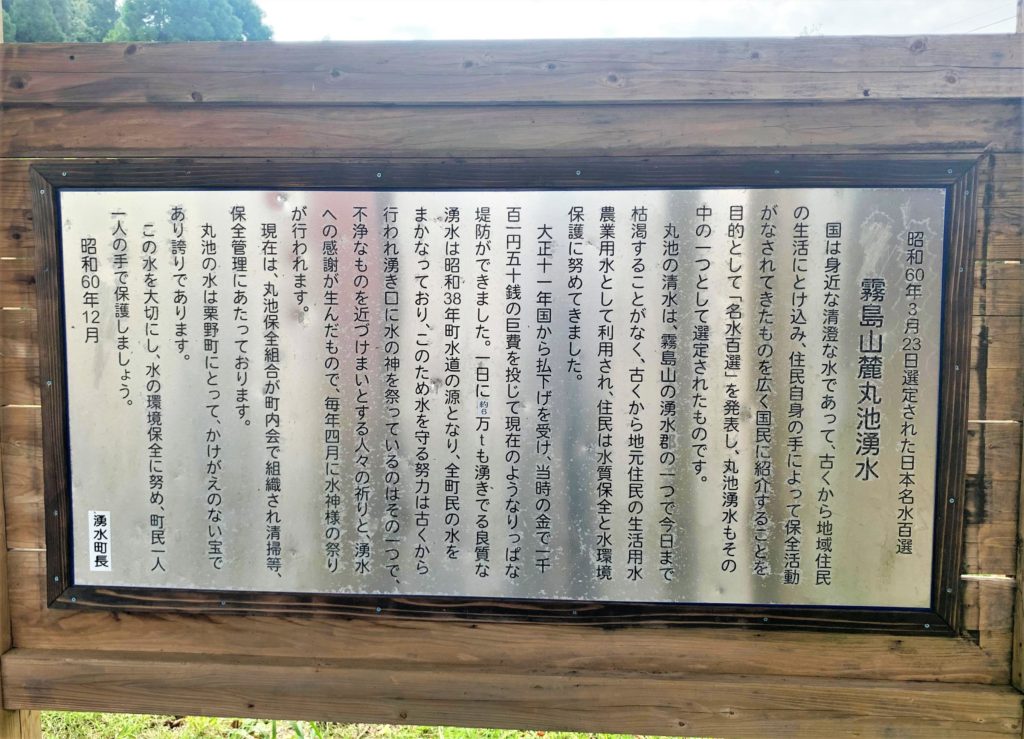 昭和60年3月23日選定された日本名水百選
霧島山麓丸池湧水
国は身近な清澄な水であって、古くから地域住民
の生活にとけ込み、住民自身の手によって保全活動
がなされてきたものを広く国民に紹介することを
目的として「名水百選」を発表し、丸池湧水もその
中の一つとして選定されたものです。
丸池の清水は、霧島山の湧水郡の一つで今日まで
枯渇することがなく、古くから地元住民の生活用水
農業用水として利用され、住民は水質保全と水環境
保護に努めてきました。
大正十一年国から払下げを受け、当時の金で一千
百一円五十銭の巨費を投じて現在のようなりっぱな
堤防ができました。一日に約6万tも湧きでる良質な
湧水は昭和38年町水道の源となり、全町民の水を
まかなっており、このため水を守る努力は古くから
行われ湧き口に水の神を祭っているのはその一つで、
不浄なものを近づけまいとする人々の祈りと、湧水
への感謝が生んだもので、毎年四月に水神様の祭り
が行われます。
現在は、丸池保全組合が町内会で組織され清掃等、
保全管理にあたっております。
丸池の水は栗野町にとって、かけがえのない宝で
あり誇りであります。
この水を大切にし、水の環境保全に努め、町民一人
一人の手で保護しましょう。
昭和60年12月
湧水町長